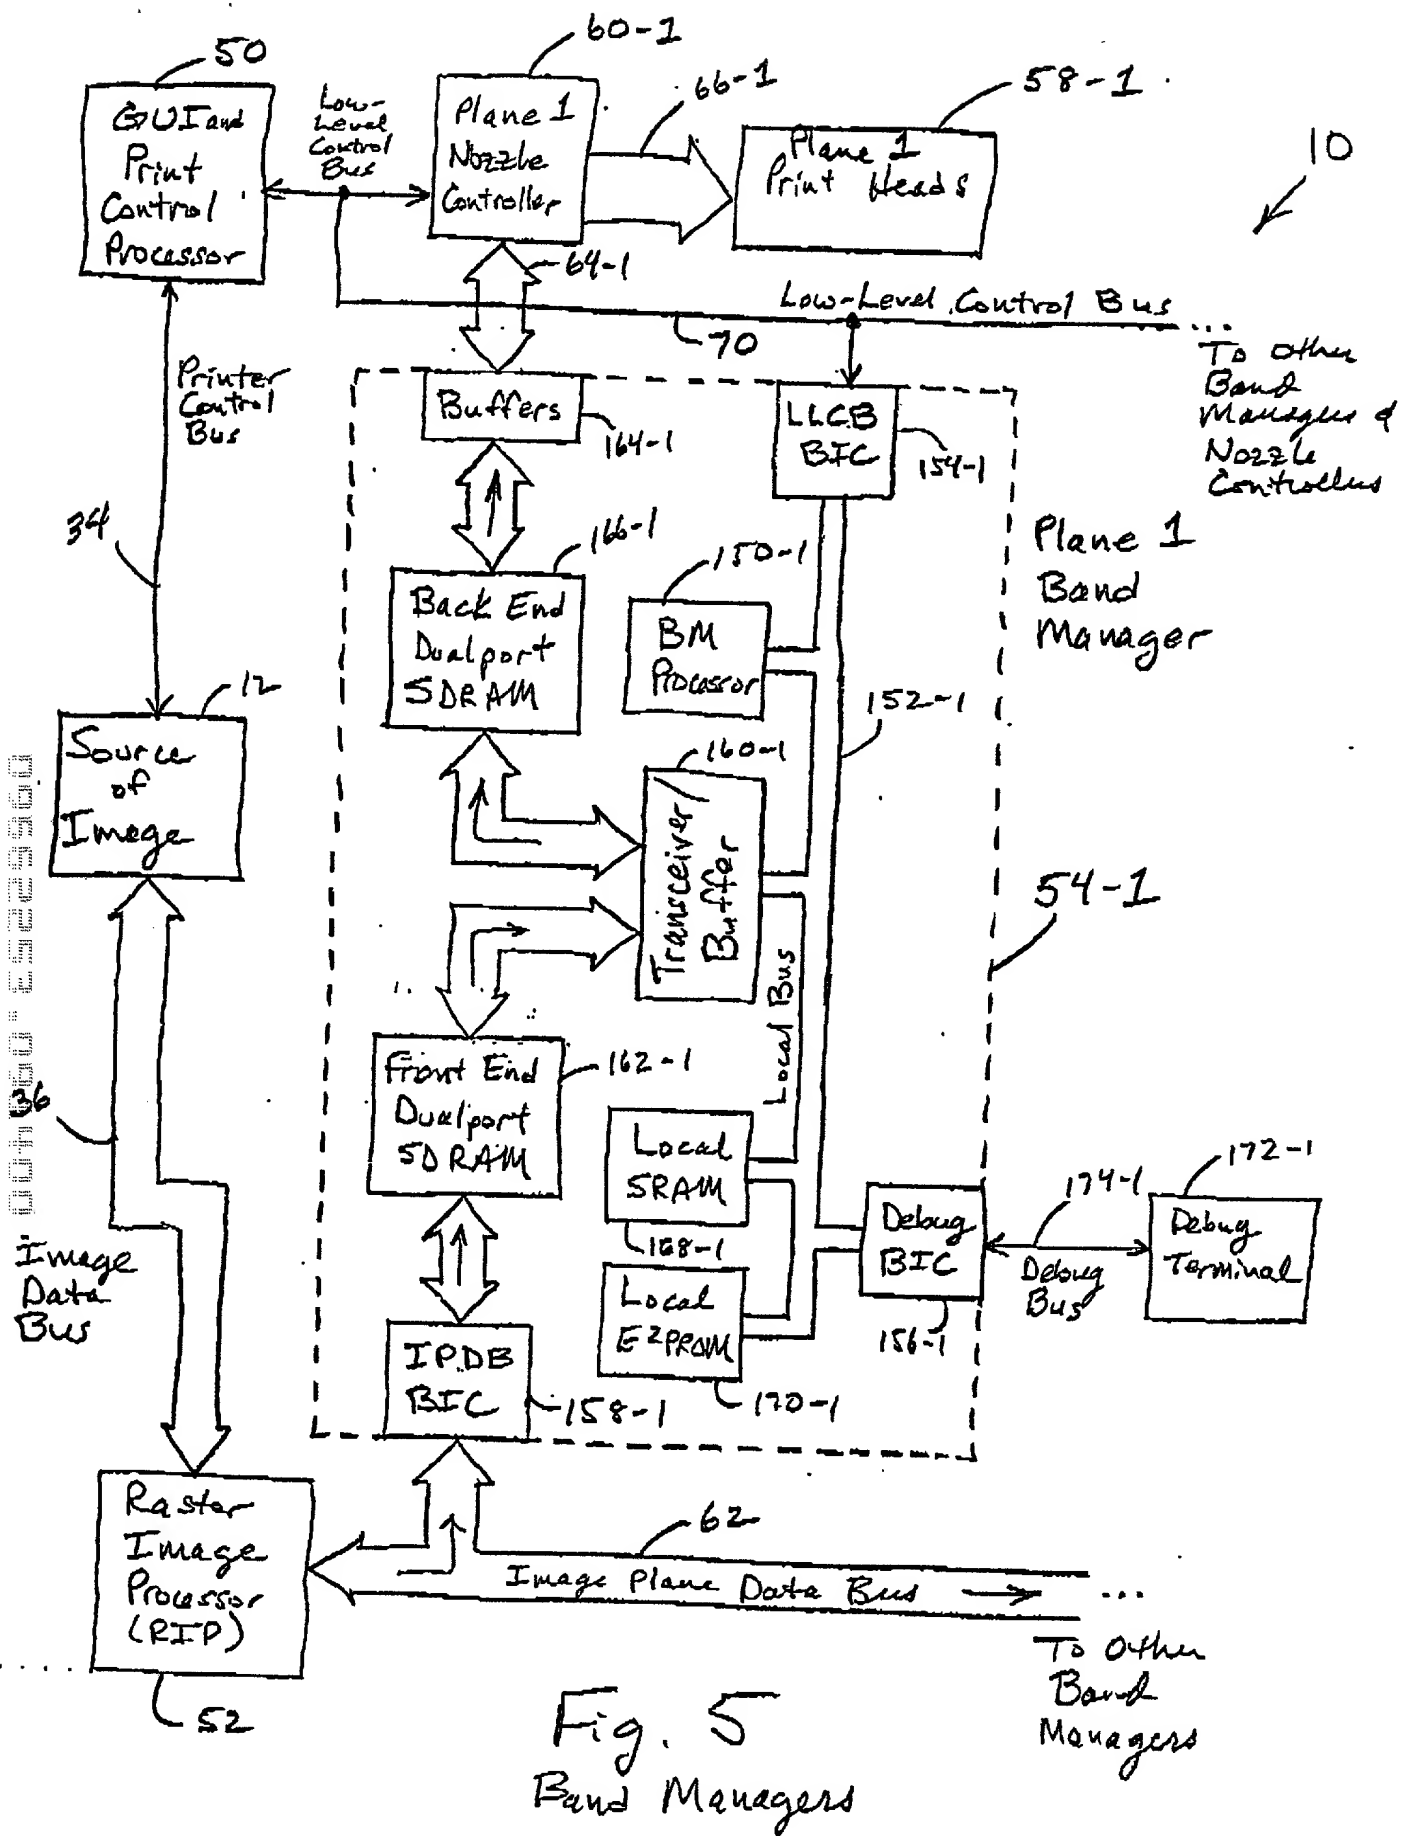 50
60-1
66-1
58-1
10
GUI and
Print
Control
Processor
Low-
Level
Control
Bus
Plane 1
Nozzle
Controller
Plane 1
Print Heads
64-1
Low-Level Control Bus
70
...
To Other
Band
Managers &
Nozzle
Controllers
Printer
Control
Bus
Buffers
164-1
LLCB
BIC
154-1
34
166-1
150-1
Plane 1
Band
Manager
Back End
Dualport
SDRAM
BM
Processor
152-1
12
Source
of
Image
160-1
Transceiver/
Buffer
54-1
Local Bus
Front End
Dualport
SDRAM
162-1
36
Local
SRAM
168-1
Debug
BIC
156-1
174-1
Debug
Bus
172-1
Debug
Terminal
Image
Data
Bus
Local
E2PROM
170-1
IPDB
BIC
158-1
Raster
Image
Processor
(RIP)
52
62
Image Plane Data Bus
...
To Other
Band
Managers
Fig. 5
Band Managers